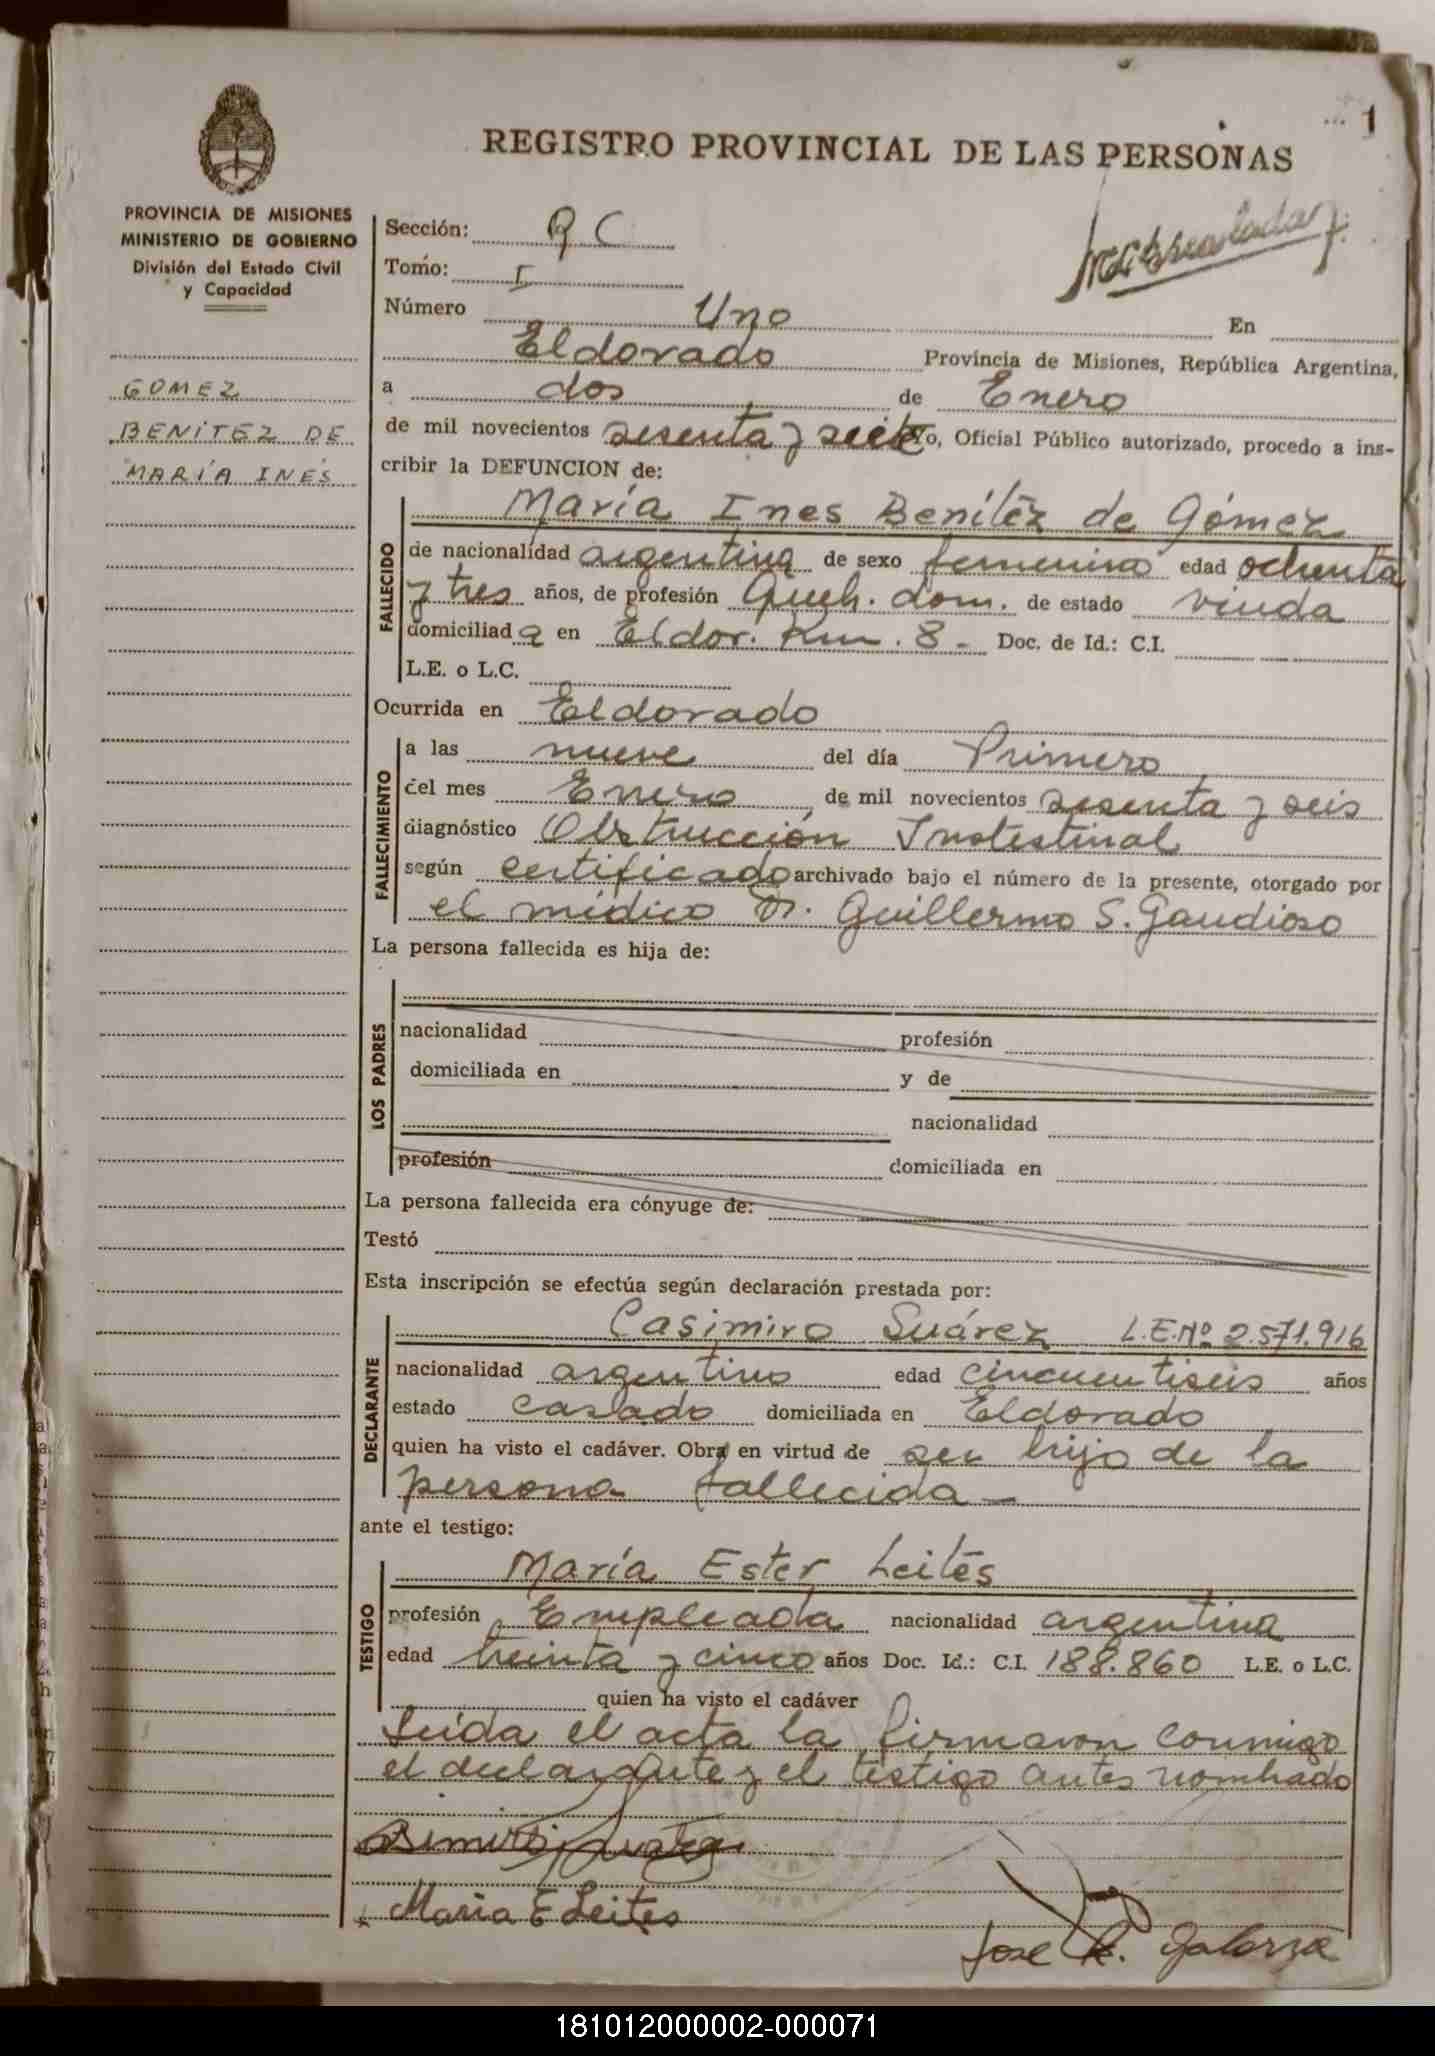 1
REGISTRO PROVINCIAL DE LAS PERSONAS
PROVINCIA DE MISIONES
MINISTERIO DE GOBIERNO
División del Estado Civil
y Capacidad
GOMEZ
BENITEZ DE
MARÍA INES
Sección:
Tomo: I
Número Uno En
Eldorado Provincia de Misiones, República Argentina,
a dos de Enero
de mil novecientos sesenta y siete Yo, Oficial Público autorizado, procedo a ins-
cribir la DEFUNCION de:
FALLECIDO
María Ines Benítez de Gómez
de nacionalidad argentina de sexo femenino edad ochenta
y tres años, de profesión Queh. dom. de estado viuda
domiciliada en Eldor. Km. 8 - Doc. de Id.: C.I.
L.E. o L.C.
Ocurrida en Eldorado
FALLECIMIENTO
a las nueve del día Primero
del mes Enero, de mil novecientos sesenta y seis
diagnóstico Obstrucción Instestinal
según certificado archivado bajo el número de la presente, otorgado por
el médico Dr. Guillermo S. Gaudioso
La persona fallecida es hija de:
LOS PADRES
nacionalidad profesión
domiciliada en y de
nacionalidad
profesión domiciliada en
La persona fallecida era cónyuge de:
Testó
Esta inscripción se efectúa según declaración prestada por:
DECLARANTE
Casimiro Suárez L.E.Nº 2.571.916
nacionalidad argentino edad cincuentiseis años
estado casado domiciliada en Eldorado
quien ha visto el cadáver. Obra en virtud de ser hijo de la
persona fallecida -
ante el testigo:
TESTIGO
María Ester Leites
profesión Empleada nacionalidad argentina
edad treinta y cinco años Doc. Id.: C.I. 188.860 L.E. o L.C.
quien ha visto el cadáver
Leída el acta la firmaron conmigo
el declarante y el testigo antes nombrado
Maria E Leites
Jose
181012000002-000071